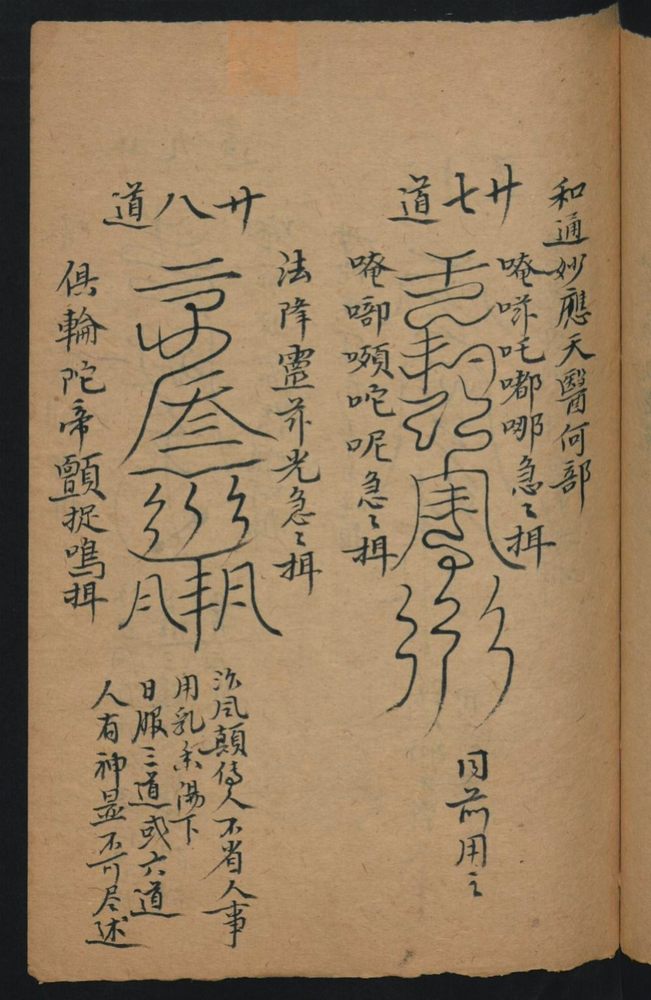 和通妙應天醫何部
廿七道
唵㖿吒嘟哪急〻揖
唵唧嚬咜呢急〻揖
同前用之
廿八道
法降靈符光急〻揖
俱輪陀帝顫捉鳴揖
治風顛傷人不省人事
用乳香湯下
日服三道或六道
人有神显不可尽述